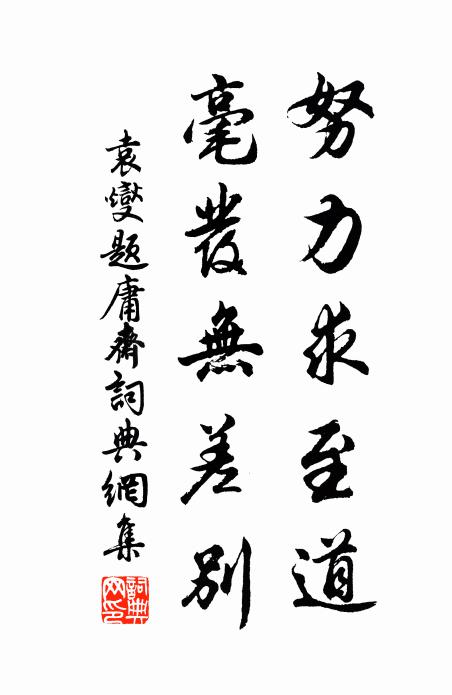 努力求至道
毫發無差別
袁燮題庸齋詞典網集
詞典網印